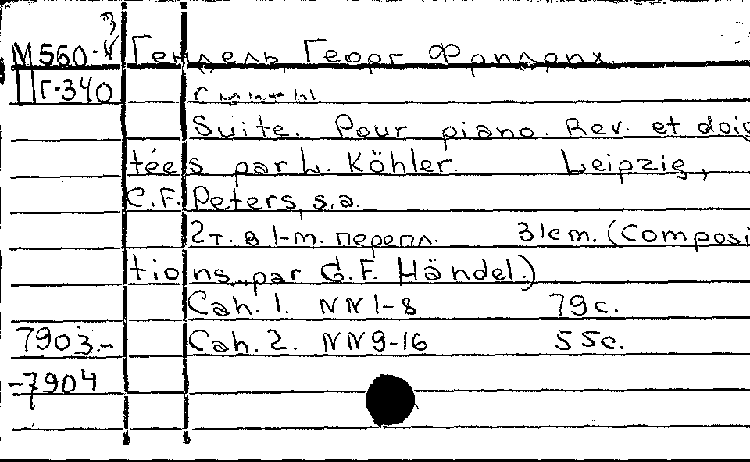 М560-4 Гендель, Георг Фридрих
Г-340 Сюиты
Suite. Pour piano. Rev. et doig
tées par L. Köhler. Leipzig,
C.F. Peters, s.a.
2т. в 1-m. перепл. 31cm. (Composi
tions par G.F. Händel.)
Cah. 1. NN 1-8 79c.
7903.- Cah. 2. NN 9-16 55c.
-7904